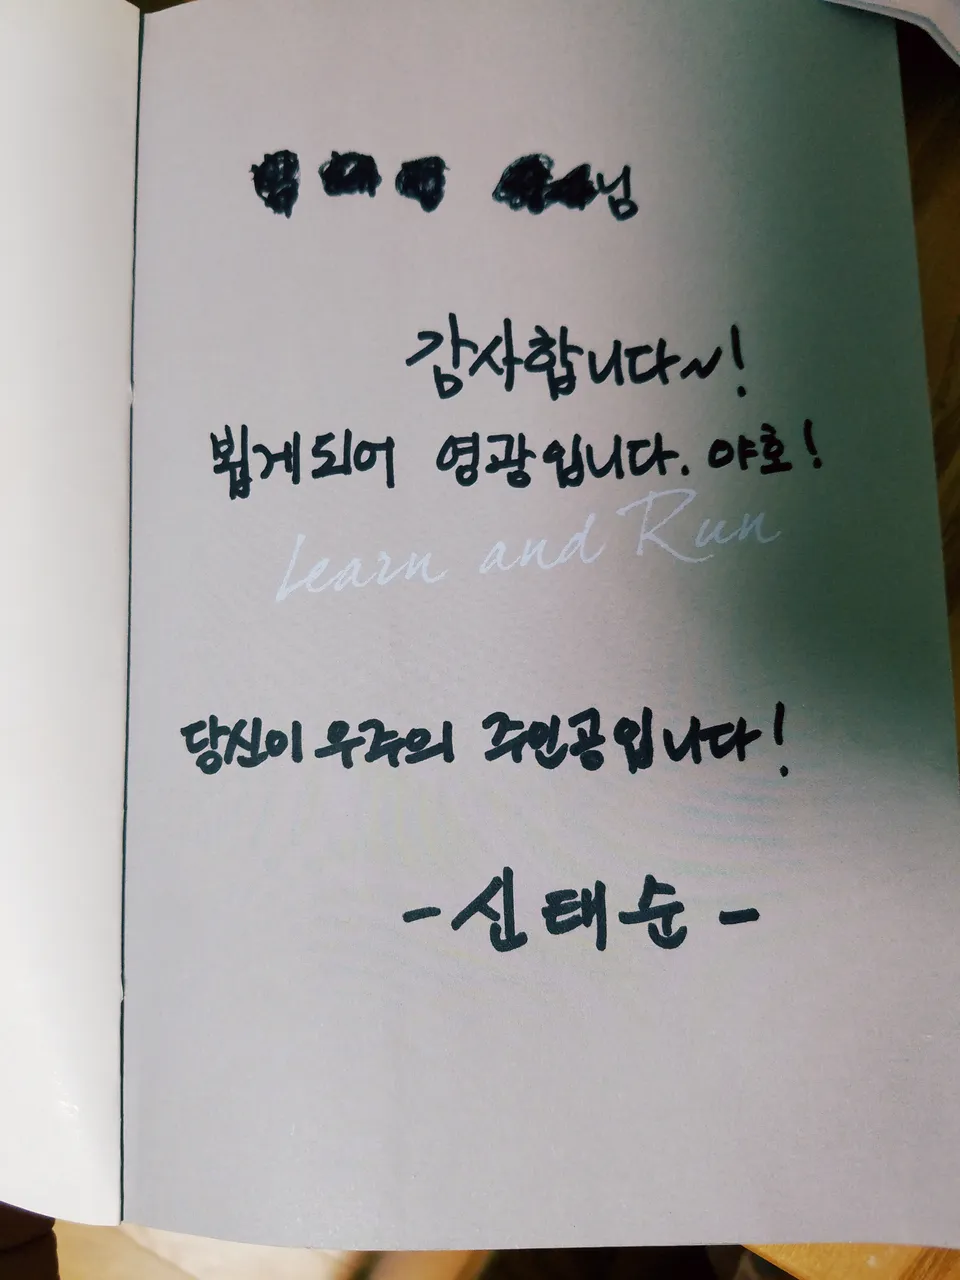 님
감사합니다~!
뵙게되어 영광입니다. 야호!
Learn and Run
당신이 우주의 주인공입니다!
- 신태순 -